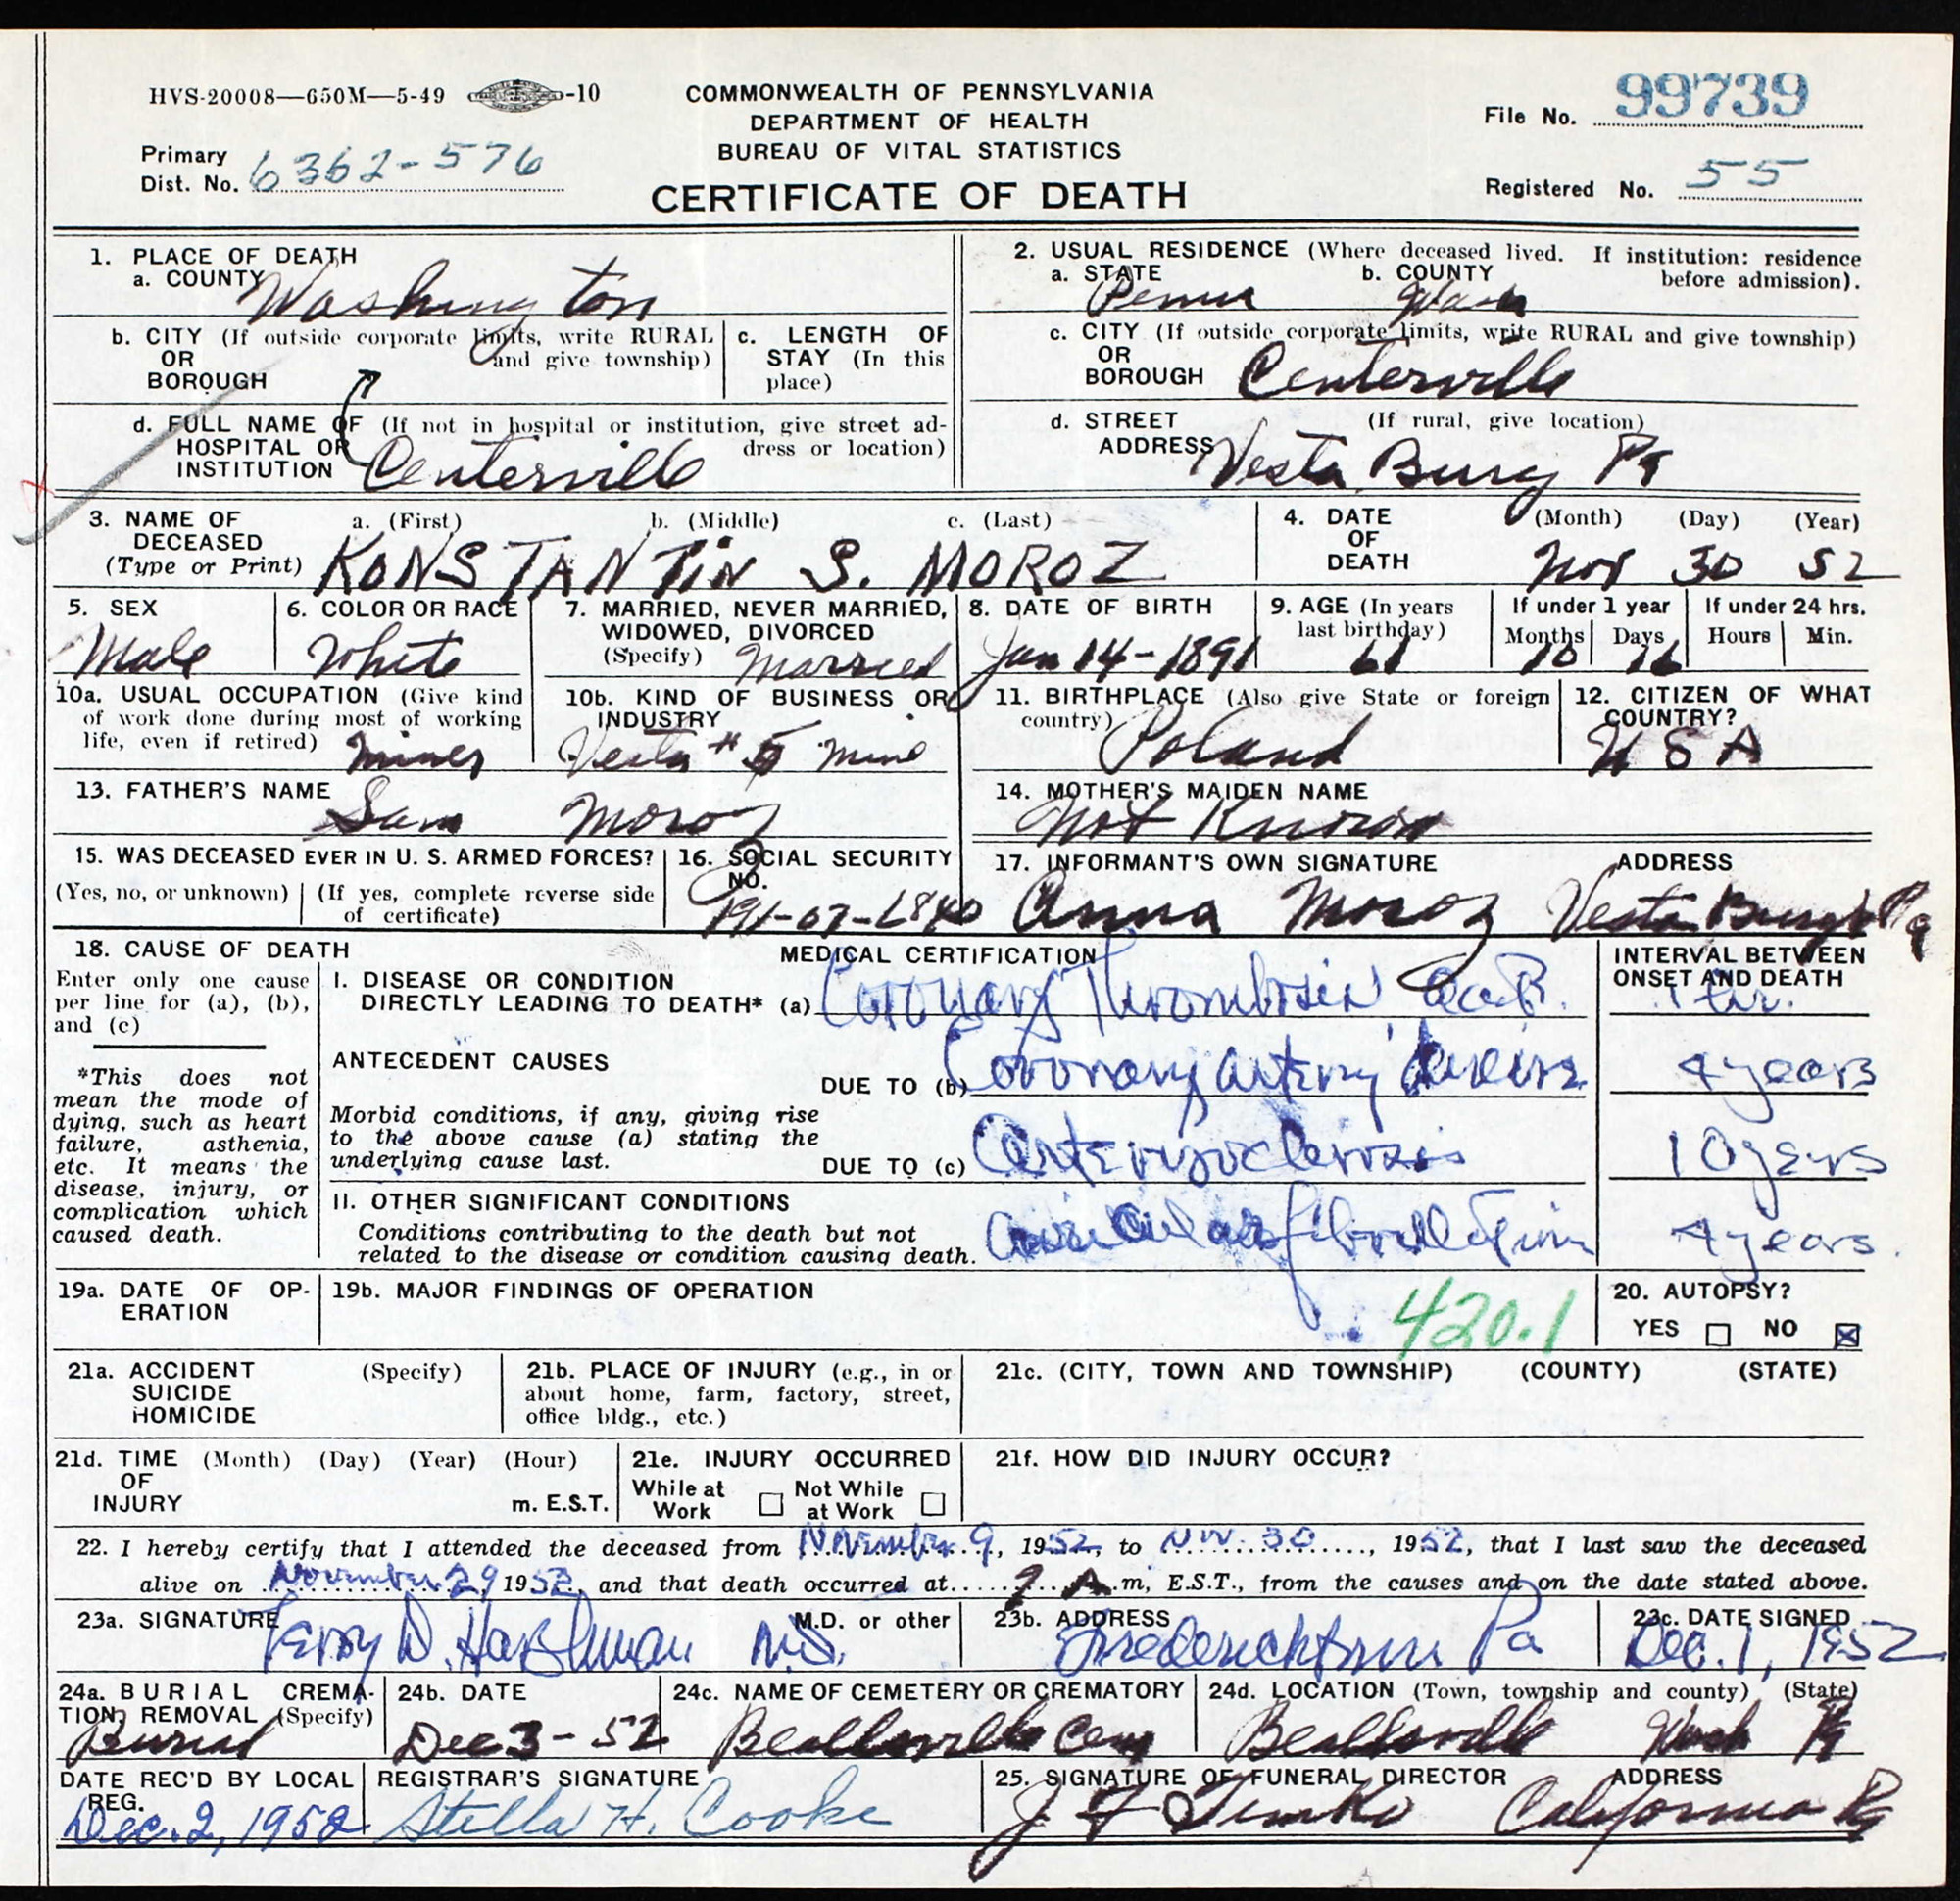 HVS-20008—650M—5-49 -10
COMMONWEALTH OF PENNSYLVANIA
DEPARTMENT OF HEALTH
BUREAU OF VITAL STATISTICS
CERTIFICATE OF DEATH
File No. 99739
Primary Dist. No. 6362-576
Registered No. 55
1. PLACE OF DEATH
a. COUNTY Washington
b. CITY (If outside corporate limits, write RURAL and give township)
OR
BOROUGH
c. LENGTH OF STAY (In this place)
d. FULL NAME OF (If not in hospital or institution, give street address or location)
HOSPITAL OR
INSTITUTION Centerville
2. USUAL RESIDENCE (Where deceased lived. If institution: residence before admission).
a. STATE Penna b. COUNTY Wash
c. CITY (If outside corporate limits, write RURAL and give township)
OR
BOROUGH Centerville
d. STREET (If rural, give location)
ADDRESS Vesta Burg Pa
3. NAME OF DECEASED (Type or Print)
a. (First) b. (Middle) c. (Last)
KONSTANTIN S. MOROZ
4. DATE OF DEATH (Month) (Day) (Year)
Nov 30 52
5. SEX
Male
6. COLOR OR RACE
White
7. MARRIED, NEVER MARRIED, WIDOWED, DIVORCED (Specify)
Married
8. DATE OF BIRTH
Jan 14-1891
9. AGE (In years last birthday)
61
If under 1 year
Months Days
10 16
If under 24 hrs.
Hours Min.
10a. USUAL OCCUPATION (Give kind of work done during most of working life, even if retired)
miner
10b. KIND OF BUSINESS OR INDUSTRY
Vesta # 5 mine
11. BIRTHPLACE (Also give State or foreign country)
Poland
12. CITIZEN OF WHAT COUNTRY?
USA
13. FATHER'S NAME
Sam Moroz
14. MOTHER'S MAIDEN NAME
Not Known
15. WAS DECEASED EVER IN U. S. ARMED FORCES?
(Yes, no, or unknown) (If yes, complete reverse side of certificate)
16. SOCIAL SECURITY NO.
17. INFORMANT'S OWN SIGNATURE ADDRESS
Anna Moroz Vesta Burg Pa
18. CAUSE OF DEATH
Enter only one cause per line for (a), (b), and (c)
*This does not mean the mode of dying, such as heart failure, asthenia, etc. It means the disease, injury, or complication which caused death.
MEDICAL CERTIFICATION
INTERVAL BETWEEN ONSET AND DEATH
I. DISEASE OR CONDITION
DIRECTLY LEADING TO DEATH* (a) Coronary Thrombosis 1 hr.
ANTECEDENT CAUSES
DUE TO (b) Coronary artery disease 4 years
Morbid conditions, if any, giving rise to the above cause (a) stating the underlying cause last.
DUE TO (c) Arteriosclerosis 10 years
II. OTHER SIGNIFICANT CONDITIONS
Conditions contributing to the death but not related to the disease or condition causing death.
Auricular fibrillation 4 years.
19a. DATE OF OPERATION
19b. MAJOR FINDINGS OF OPERATION
420.1
20. AUTOPSY?
YES NO
21a. ACCIDENT (Specify)
SUICIDE
HOMICIDE
21b. PLACE OF INJURY (e.g., in or about home, farm, factory, street, office bldg., etc.)
21c. (CITY, TOWN AND TOWNSHIP) (COUNTY) (STATE)
21d. TIME (Month) (Day) (Year) (Hour)
OF
INJURY m. E.S.T.
21e. INJURY OCCURRED
While at Work Not While at Work
21f. HOW DID INJURY OCCUR?
22. I hereby certify that I attended the deceased from November 9, 1952, to Nov. 30, 1952, that I last saw the deceased
alive on November 29 1952, and that death occurred at 9 A. m, E.S.T., from the causes and on the date stated above.
23a. SIGNATURE M.D. or other
Harshman M.D.
23b. ADDRESS
Fredericktown Pa
23c. DATE SIGNED
Dec. 1, 1952
24a. BURIAL CREMATION, REMOVAL (Specify)
Burial
24b. DATE
Dec 3-52
24c. NAME OF CEMETERY OR CREMATORY
Beallsville Cem
24d. LOCATION (Town, township and county) (State)
Beallsville Wash Pa
DATE REC'D BY LOCAL REG.
Dec. 2, 1952
REGISTRAR'S SIGNATURE
Stella H. Cooke
25. SIGNATURE OF FUNERAL DIRECTOR ADDRESS
California Pa